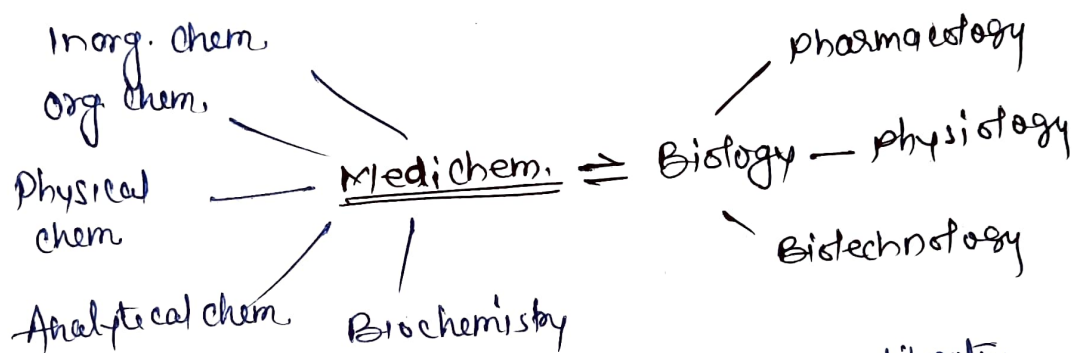 Inorg. chem.
org. chem.
Physical
chem
Analytical chem.
Biochemistry
Medichem. ⇌ Biology — physiology
pharmacology
Biotechnology